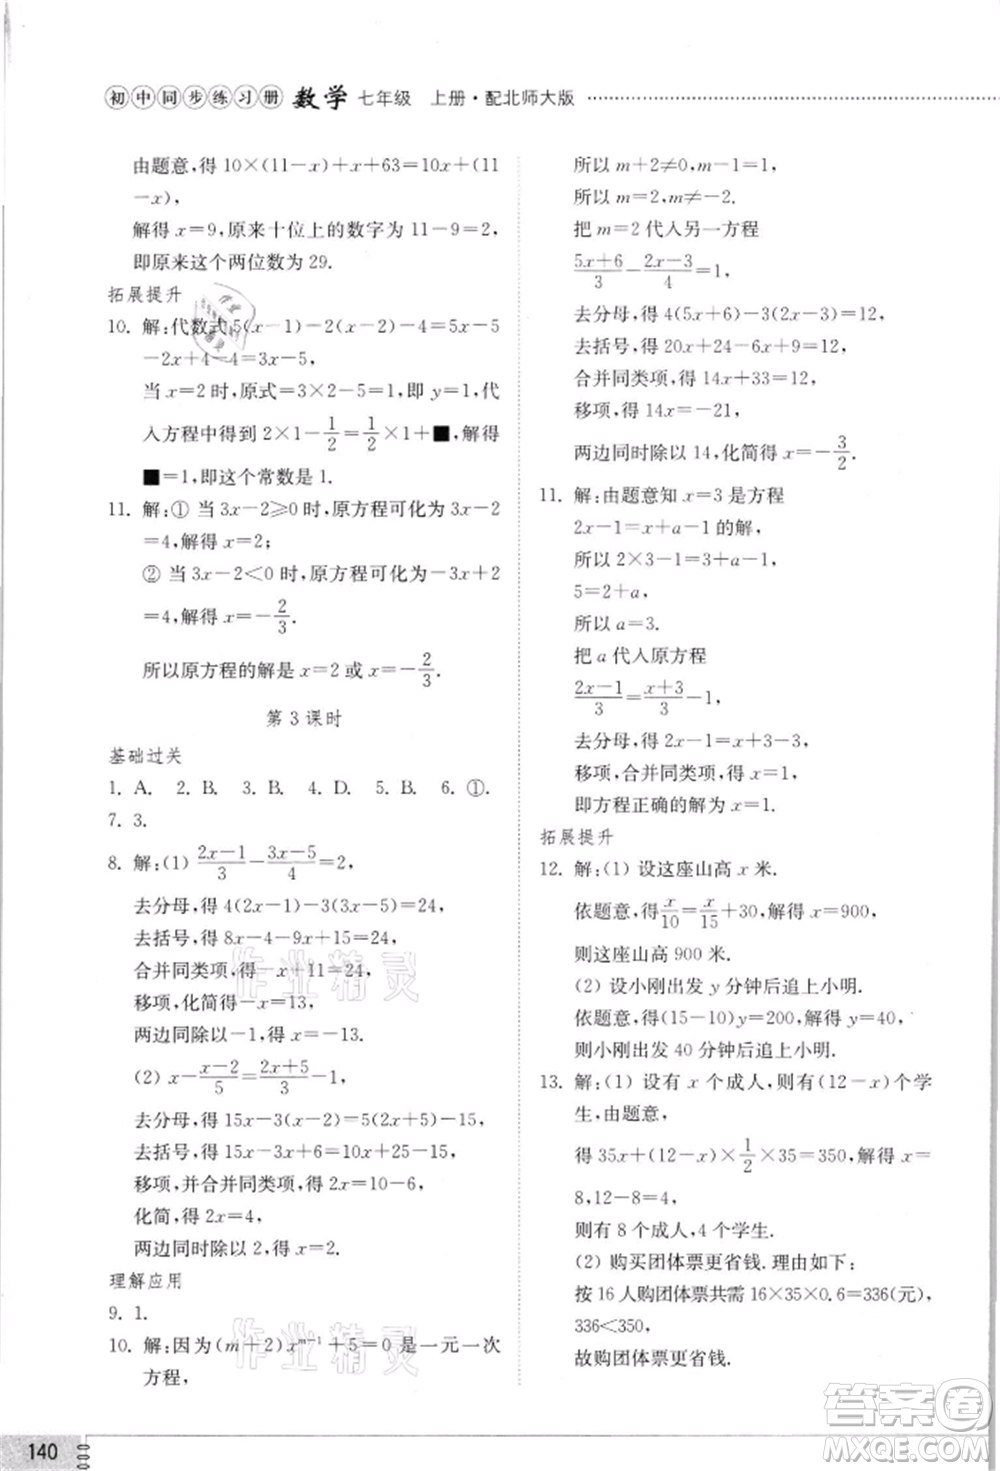 初中同步练习册 数学 七年级 上册·配北师大版
由题意,得 10×(11-x)+x+63=10x+(11
-x),
解得 x=9,原来十位上的数字为 11-9=2,
即原来这个两位数为 29.
拓展提升
10. 解:代数式 5(x-1)-2(x-2)-4=5x-5
-2x+4-4=3x-5,
当 x=2 时,原式=3×2-5=1,即 y=1,代
入方程中得到 2×1-1/2=1/2×1+■,解得
■=1,即这个常数是 1.
11. 解:① 当 3x-2≥0 时,原方程可化为 3x-2
=4,解得 x=2;
② 当 3x-2<0 时,原方程可化为-3x+2
=4,解得 x=-2/3.
所以原方程的解是 x=2 或 x=-2/3.
第 3 课时
基础过关
1. A. 2. B. 3. B. 4. D. 5. B. 6. ①.
7. 3.
8. 解:(1) (2x-1)/3-(3x-5)/4=2,
去分母,得 4(2x-1)-3(3x-5)=24,
去括号,得 8x-4-9x+15=24,
合并同类项,得-x+11=24,
移项,化简得-x=13,
两边同除以-1,得 x=-13.
(2) x-(x-2)/5=(2x+5)/3-1,
去分母,得 15x-3(x-2)=5(2x+5)-15,
去括号,得 15x-3x+6=10x+25-15,
移项,并合并同类项,得 2x=10-6,
化简,得 2x=4,
两边同时除以 2,得 x=2.
理解应用
9. 1.
10. 解:因为(m+2)x^{m-1}+5=0 是一元一次
方程,
所以 m+2≠0,m-1=1,
所以 m=2,m≠-2.
把 m=2 代入另一方程
(5x+6)/3-(2x-3)/4=1,
去分母,得 4(5x+6)-3(2x-3)=12,
去括号,得 20x+24-6x+9=12,
合并同类项,得 14x+33=12,
移项,得 14x=-21,
两边同时除以 14,化简得 x=-3/2.
11. 解:由题意知 x=3 是方程
2x-1=x+a-1 的解,
所以 2×3-1=3+a-1,
5=2+a,
所以 a=3.
把 a 代入原方程
(2x-1)/3=(x+3)/3-1,
去分母,得 2x-1=x+3-3,
移项,合并同类项,得 x=1,
即方程正确的解为 x=1.
拓展提升
12. 解:(1) 设这座山高 x 米.
依题意,得x/10=x/15+30,解得 x=900,
则这座山高 900 米.
(2) 设小刚出发 y 分钟后追上小明.
依题意,得(15-10)y=200,解得 y=40,
则小刚出发 40 分钟后追上小明.
13. 解:(1) 设有 x 个成人,则有(12-x)个学
生,由题意,
得 35x+(12-x)×1/2×35=350,解得 x=
8,12-8=4,
则有 8 个成人,4 个学生.
(2) 购买团体票更省钱. 理由如下:
按 16 人购团体票共需 16×35×0.6=336(元),
336<350,
故购团体票更省钱.
作业精灵
作业精灵
140
答案圈
MXQE.COM